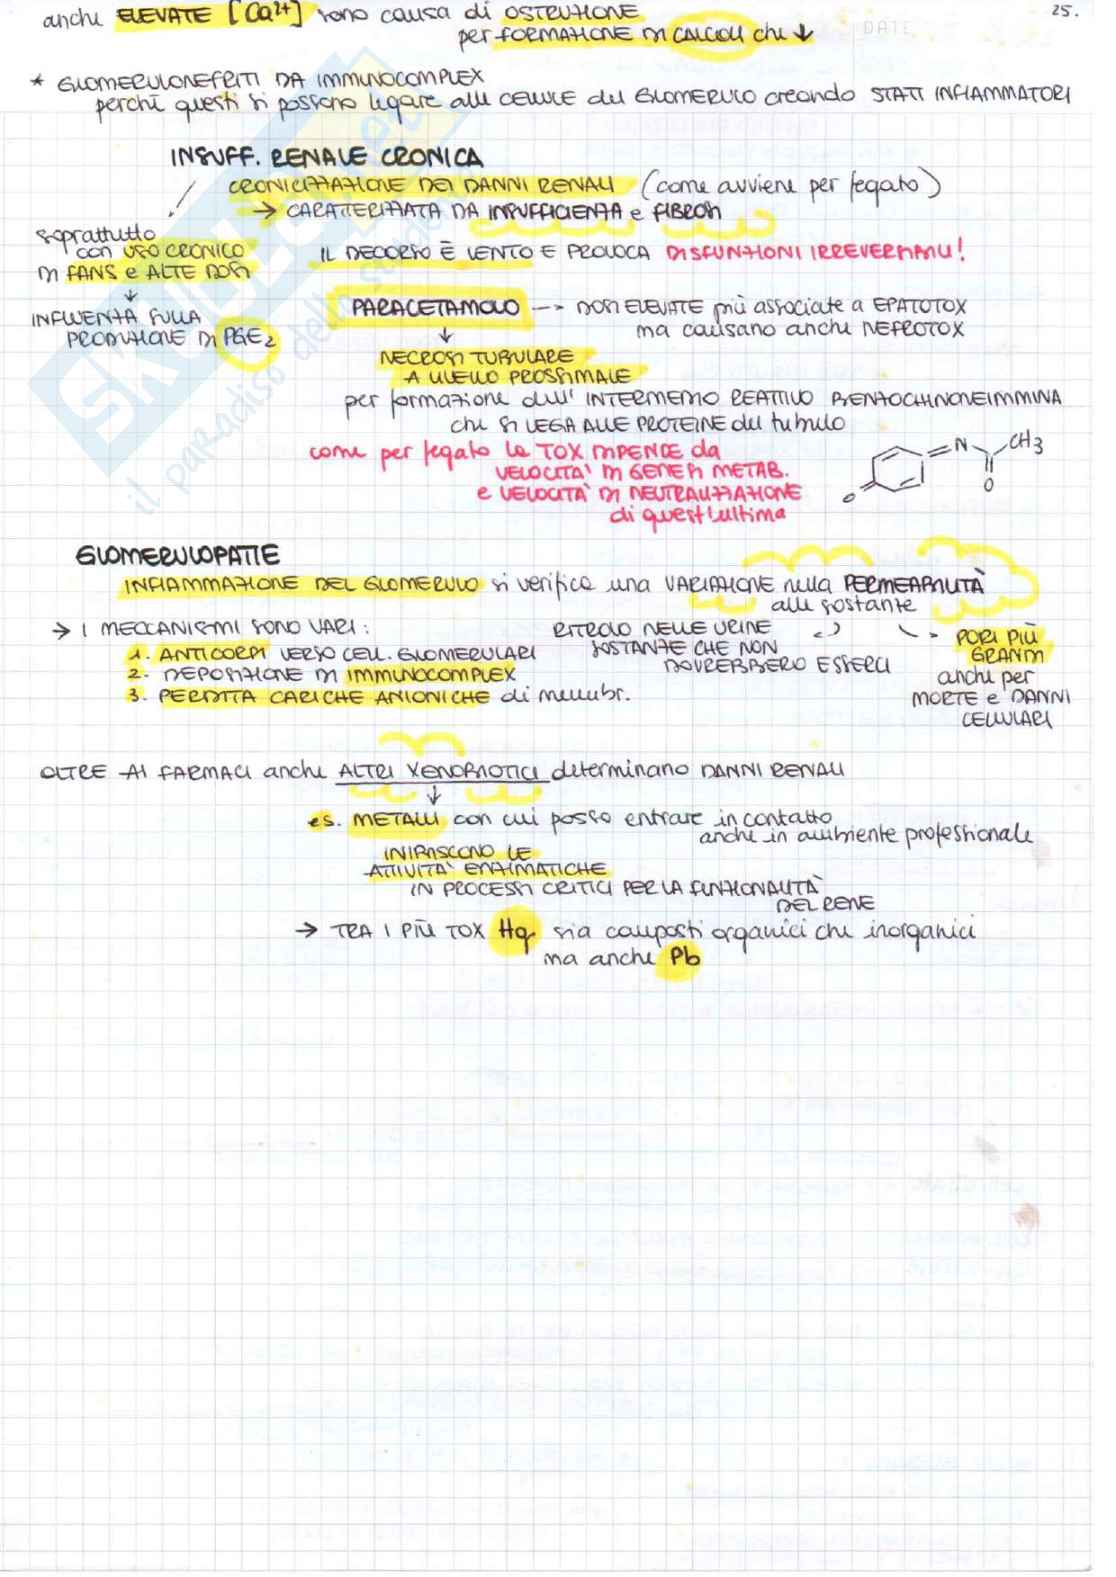 anche ELEVATE [Ca²⁺] sono causa di OSTRUZIONE
25.
per FORMAZIONE DI CALCOLI che ↓
DATE
* GLOMERULONEFRITI DA IMMUNOCOMPLEX
perché questi si possono legare alle CELLULE del GLOMERULO creando STATI INFIAMMATORI
INSUFF. RENALE CRONICA
CRONICIZZAZIONE DEI DANNI RENALI (come avviene per fegato)
→ CARATTERIZZATA DA INSUFFICIENZA e FIBROSI
soprattutto
con USO CRONICO
DI FANS e ALTE DOSI
↓
INFLUENZA SULLA
PRODUZIONE DI PGE₂
IL DECORSO È LENTO E PROVOCA DISFUNZIONI IRREVERSIBILI!
PARACETAMOLO --> DOSI ELEVATE più associate a EPATOTOX
ma causano anche NEFROTOX
↓
NECROSI TUBULARE
A LIVELLO PROSSIMALE
per formazione dell' INTERMEDIO REATTIVO BENZOCHINONEIMMINA
che SI LEGA ALLE PROTEINE del tubulo
come per fegato la TOX DIPENDE da
VELOCITA' DI GENESI METAB.
e VELOCITA' DI NEUTRALIZZAZIONE
di quest'ultima
O N CH3
O
GLOMERULOPATIE
INFIAMMAZIONE DEL GLOMERULO si verifica una VARIAZIONE nella PERMEABILITÀ
alle sostante
→ I MECCANISMI SONO VARI:
1. ANTICORPI VERSO CELL. GLOMERULARI
2. DEPOSIZIONE DI IMMUNOCOMPLEX
3. PERDITA CARICHE ANIONICHE di membr.
RITROVO NELLE URINE
SOSTANZE CHE NON
DOVREBBERO ESSERCI
PORI PIÙ
GRANDI
anche per
MORTE e DANNI
CELLULARI
OLTRE AI FARMACI anche ALTRI XENOBIOTICI determinano DANNI RENALI
↓
es. METALLI con cui posso entrare in contatto
anche in ambiente professionale
INIBISCONO LE
ATTIVITA' ENZIMATICHE
IN PROCESSI CRITICI PER LA FUNZIONALITÀ
DEL RENE
→ TRA I PIÙ TOX Hg sia composti organici che inorganici
ma anche Pb
il paradiso dello